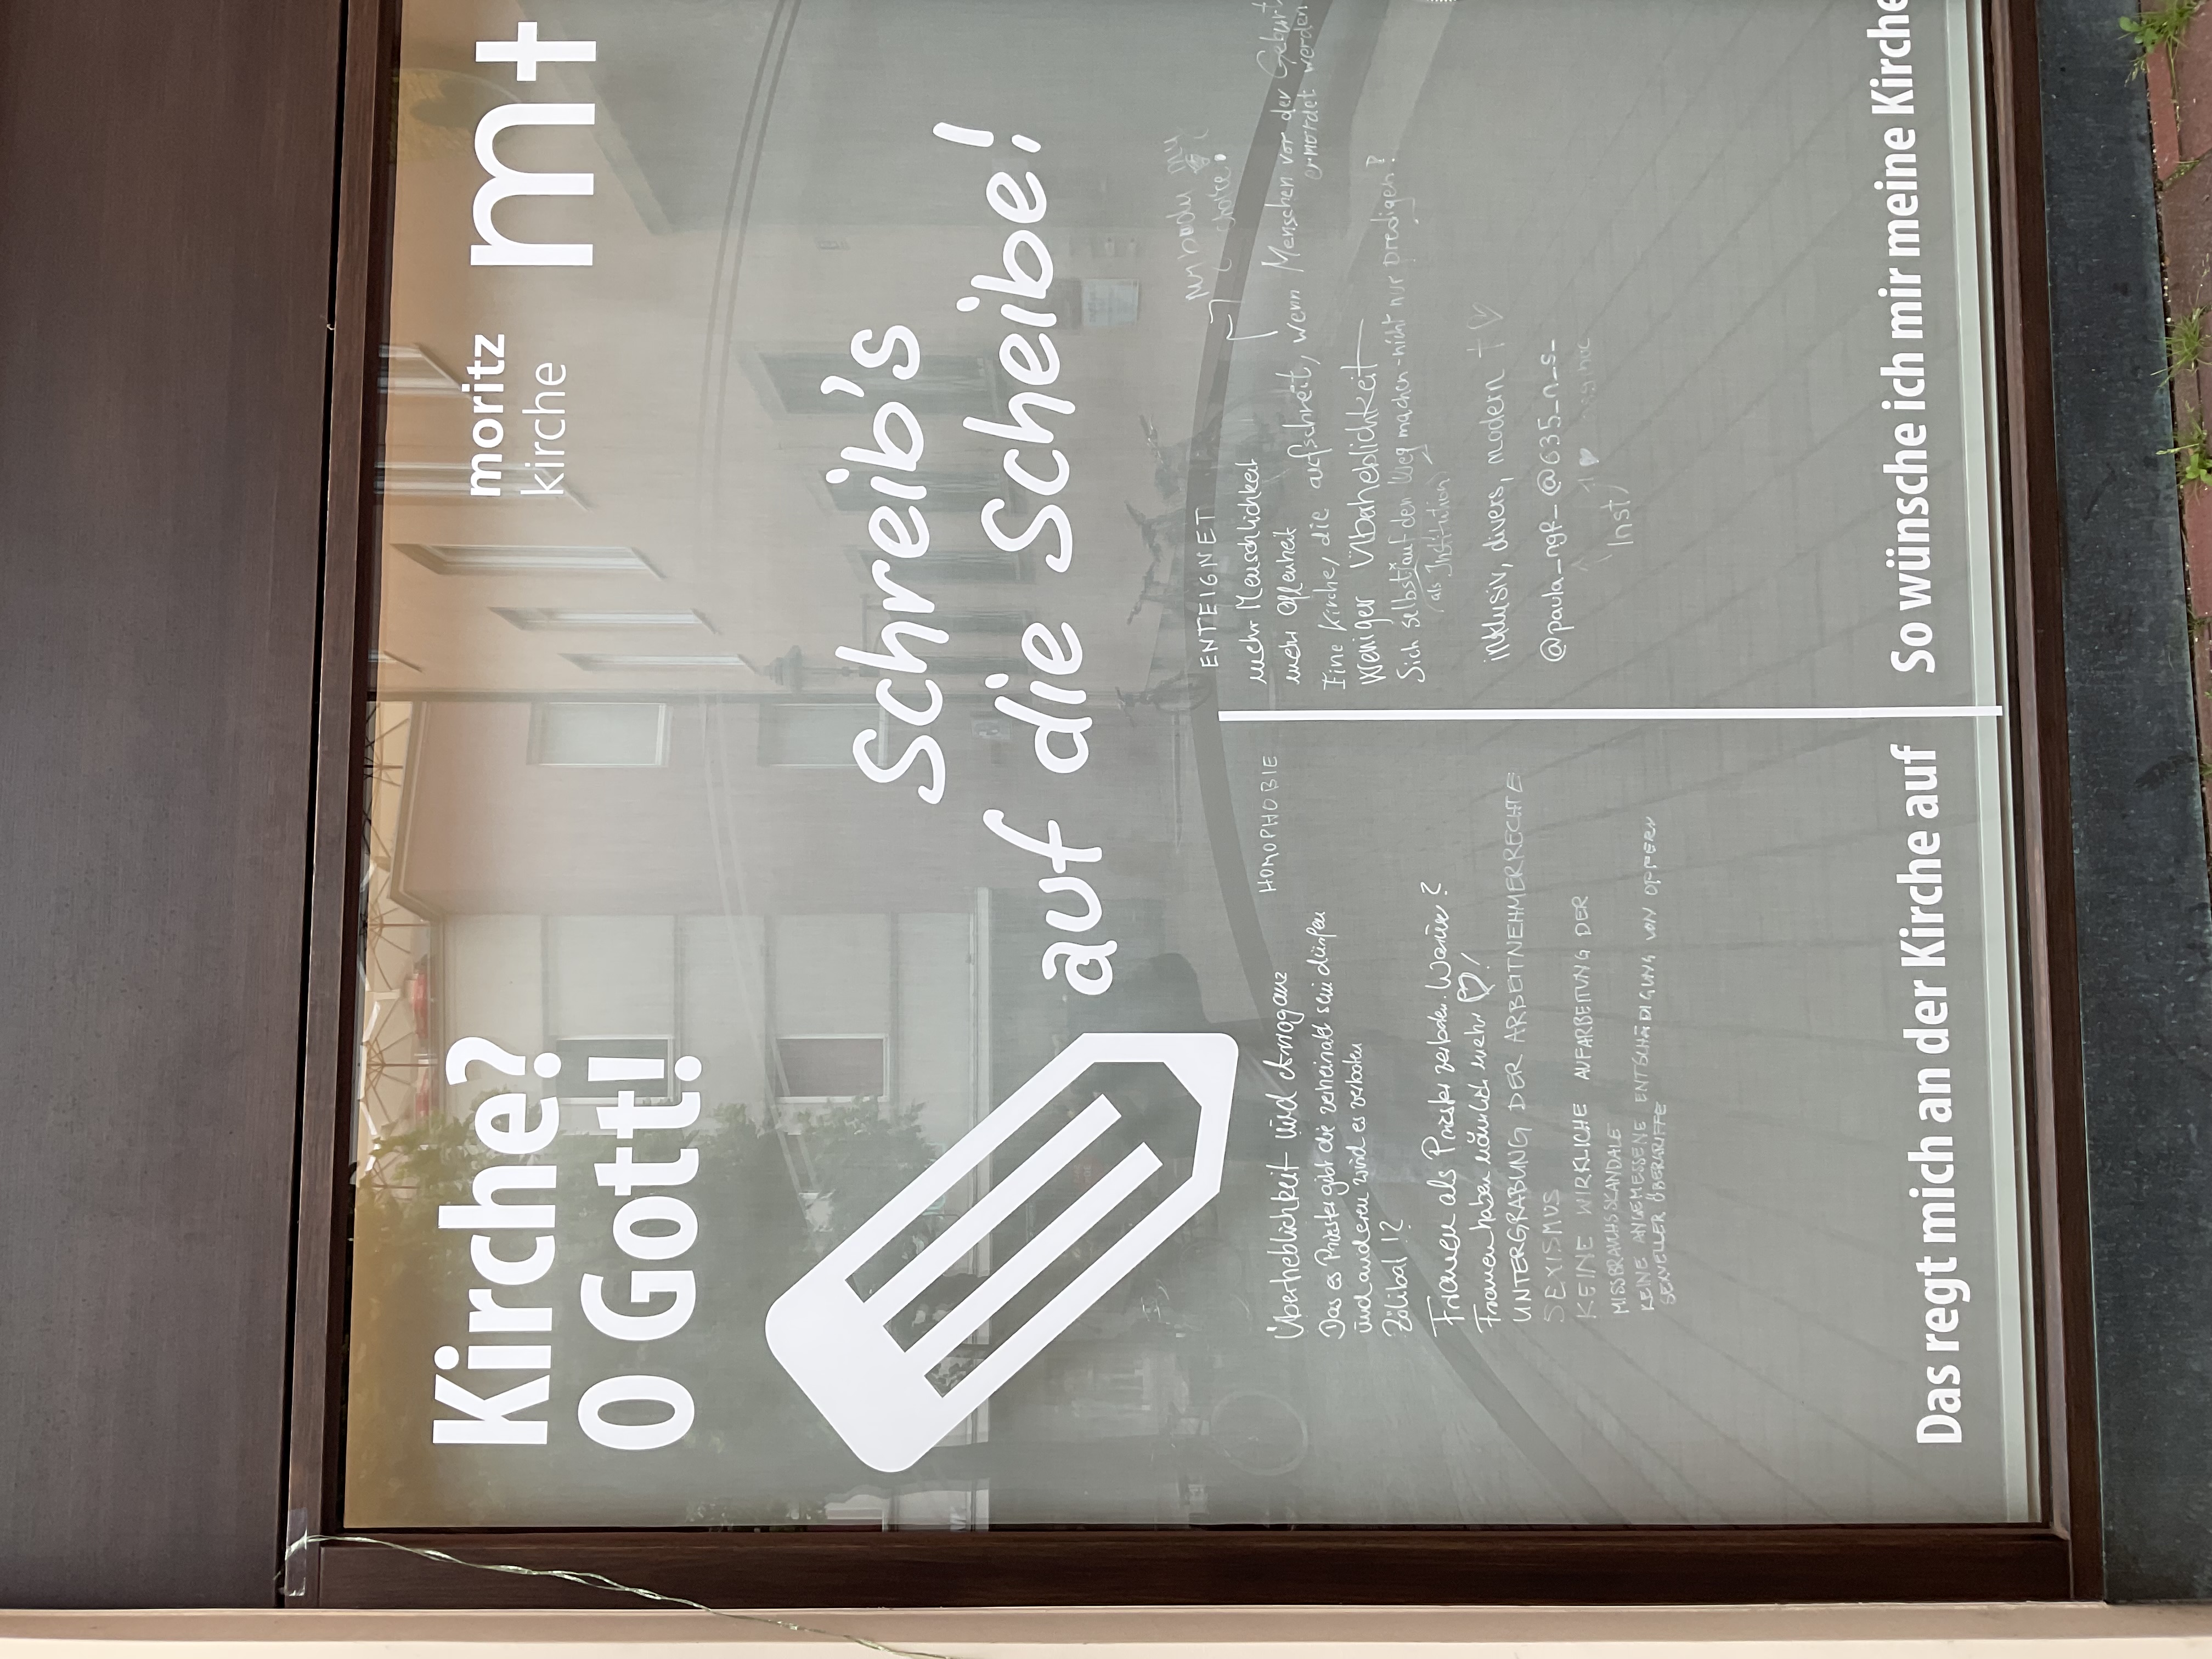 Kirche?
O Gott!
moritz
kirche
m+
Schreib's
auf die Scheibe!
HOMOPHOBIE
Überheblichkeit und Arroganz
Das es Priester gibt die verheiratet sein dürfen
und anderen wird es verboten
Zölibat!?
Frauen als Priester verboten. Warum?
Frauen haben nämlich mehr ♡!
UNTERGRABUNG DER ARBEITNEHMERRECHTE
SEXISMUS
KEINE WIRKLICHE AUFARBEITUNG DER
MISSBRAUCHSSKANDALE
KEINE ANGEMESSENE ENTSCHÄDIGUNG VON OPFERN
SEXUELLER ÜBERGRIFFE
Das regt mich an der Kirche auf
ENTEIGNET
mehr Menschlichkeit
mehr Offenheit
Eine Kirche, die aufschreit, wenn Menschen vor der Geburt
ermordet werden
Weniger Übaheblichkeit
Sich selbst auf den Weg machen - nicht nur predigen!
(als Institution)
inklusiv, divers, modern
@paula_ngr_ @635_n_s_
Inst
So wünsche ich mir meine Kirche